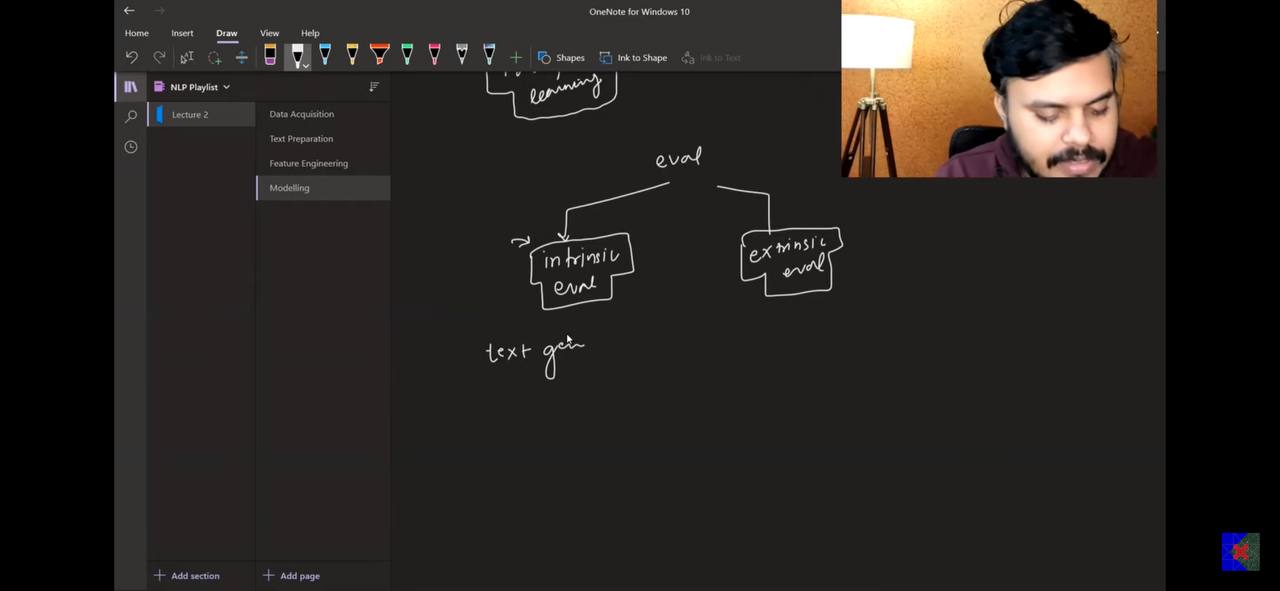 OneNote for Windows 10
Home Insert Draw View Help
Shapes Ink to Shape Ink to Text
NLP Playlist
Lecture 2
Data Acquisition
Text Preparation
Feature Engineering
Modelling
learning
eval
intrinsic
eval
extrinsic
eval
text gen
Add section
Add page